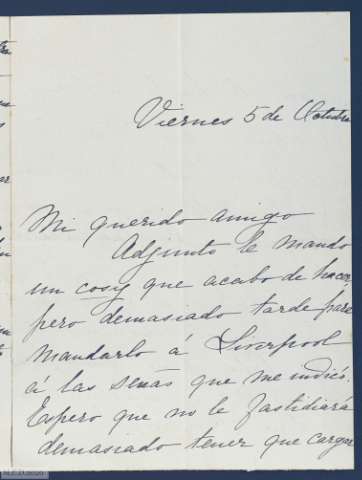 Viernes 5 de Octubre
Mi querido amigo
Adjunto le mando
un cosy que acabo de hacer,
pero demasiado tarde para
mandarlo á Liverpool
á las señas que me indicó.
Espero que no le fastidiará
demasiado tener que cargar